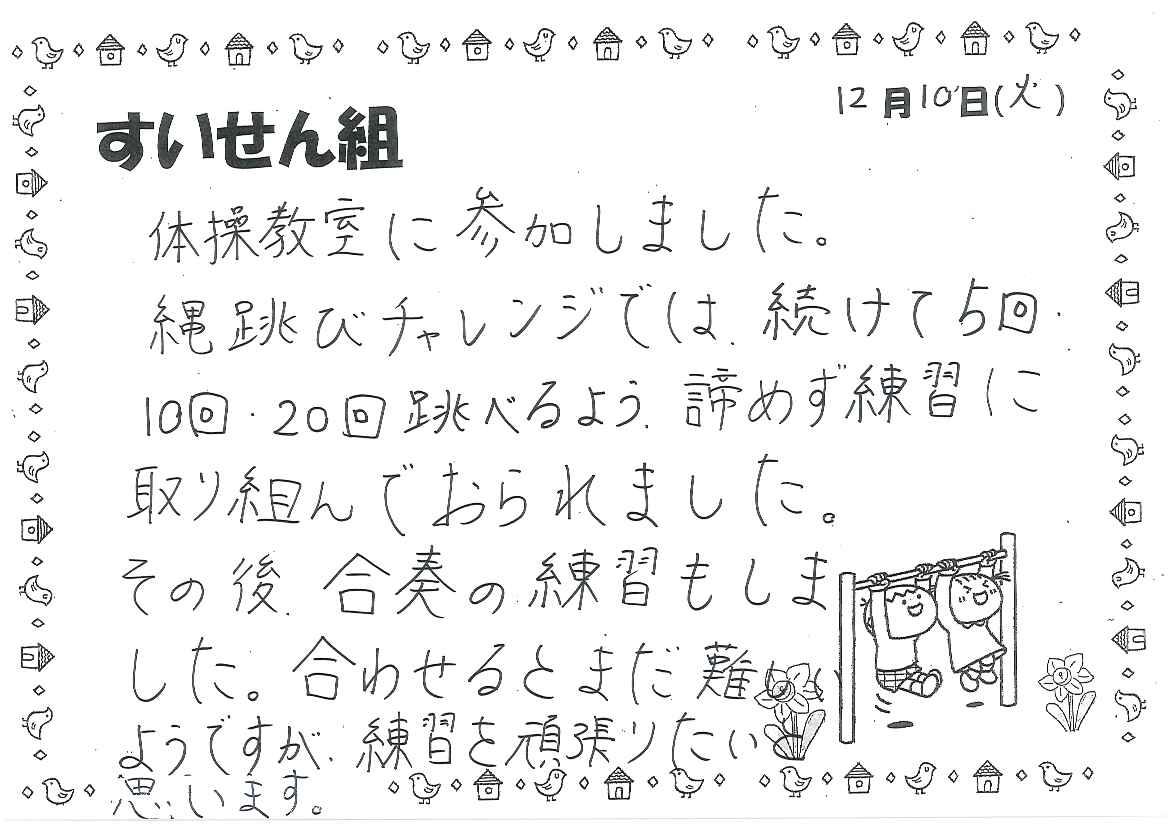 12月10日(火)
すいせん組
体操教室に参加しました。
縄跳びチャレンジでは、続けて5回・
10回・20回跳べるよう、諦めず練習に
取り組んでおられました。
その後、合奏の練習もしま
した。合わせるとまだ難しい
ようですが、練習を頑張りたいと
思います。